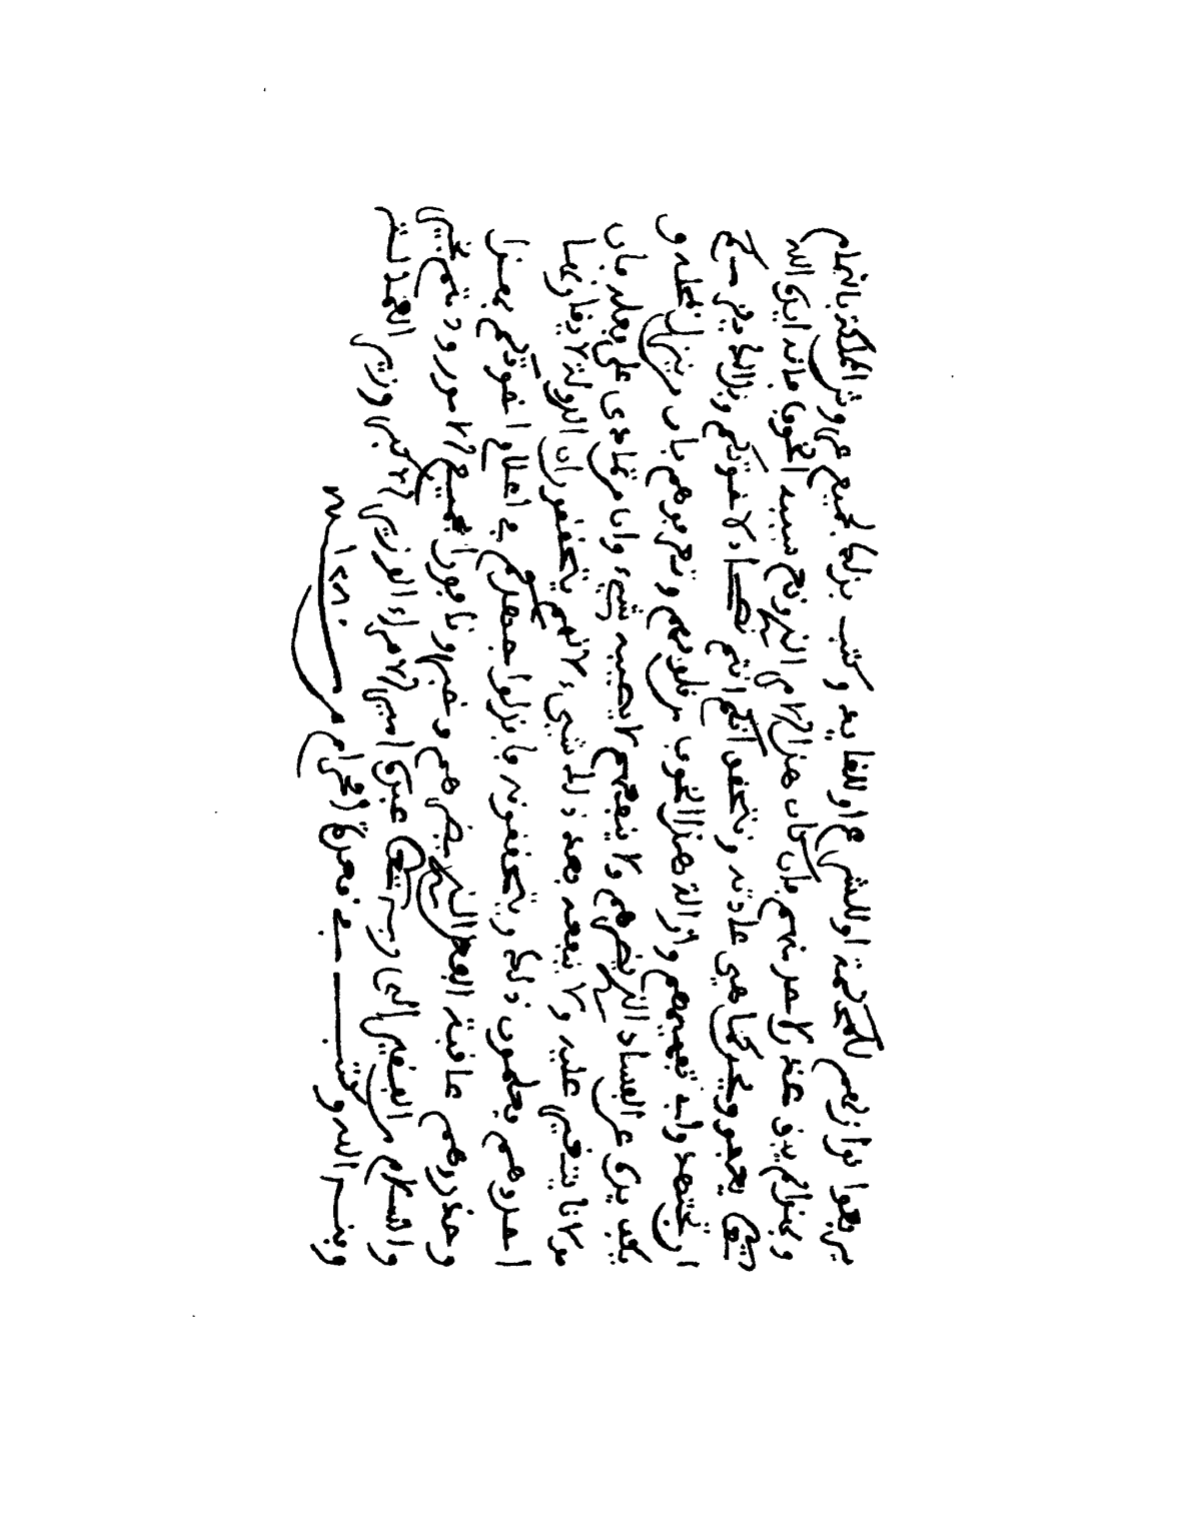 يرفعوا نوازلهم للمحكمة او للشرع او للقايد وكتب بذلك لجميع عروش المملكة
عنه كل ضرر منهم فان كان هذا الامر الذي وقع سببه الخوف فانه ايده الله
تعالى يعفو كما هي عادته ونتحقق انكم انتم وبذلك
ان تجتهدوا في تفهيمهم وازالة هذا الخوف من قلوبهم وتعرفوهم بان من فعله و
يكف يده عن الفساد الذي يضرهم ولا ينفعهم لا يصيبه شيء وان من تمادى على فعله فان
مولانا يتغير عليه ولا ينفعه بعد ذلك شيء لانهم يتحققون ان الدولة لا يقاومها
احد وهم يعلمون ذلك ويتحققونه فابذلوا جهدكم في اعلام اخوتكم بهذا
وحذروهم عاقبة الفعل الذي يضرهم وخبرونا فورا بجميع الامور ودمتم بخير
والسلام من الفقير الى ربه تعالى عبده امير الامراء الوزير الاكبر وزير العمالة
الله وكتب في قعدة الحرام ١٢٨٠